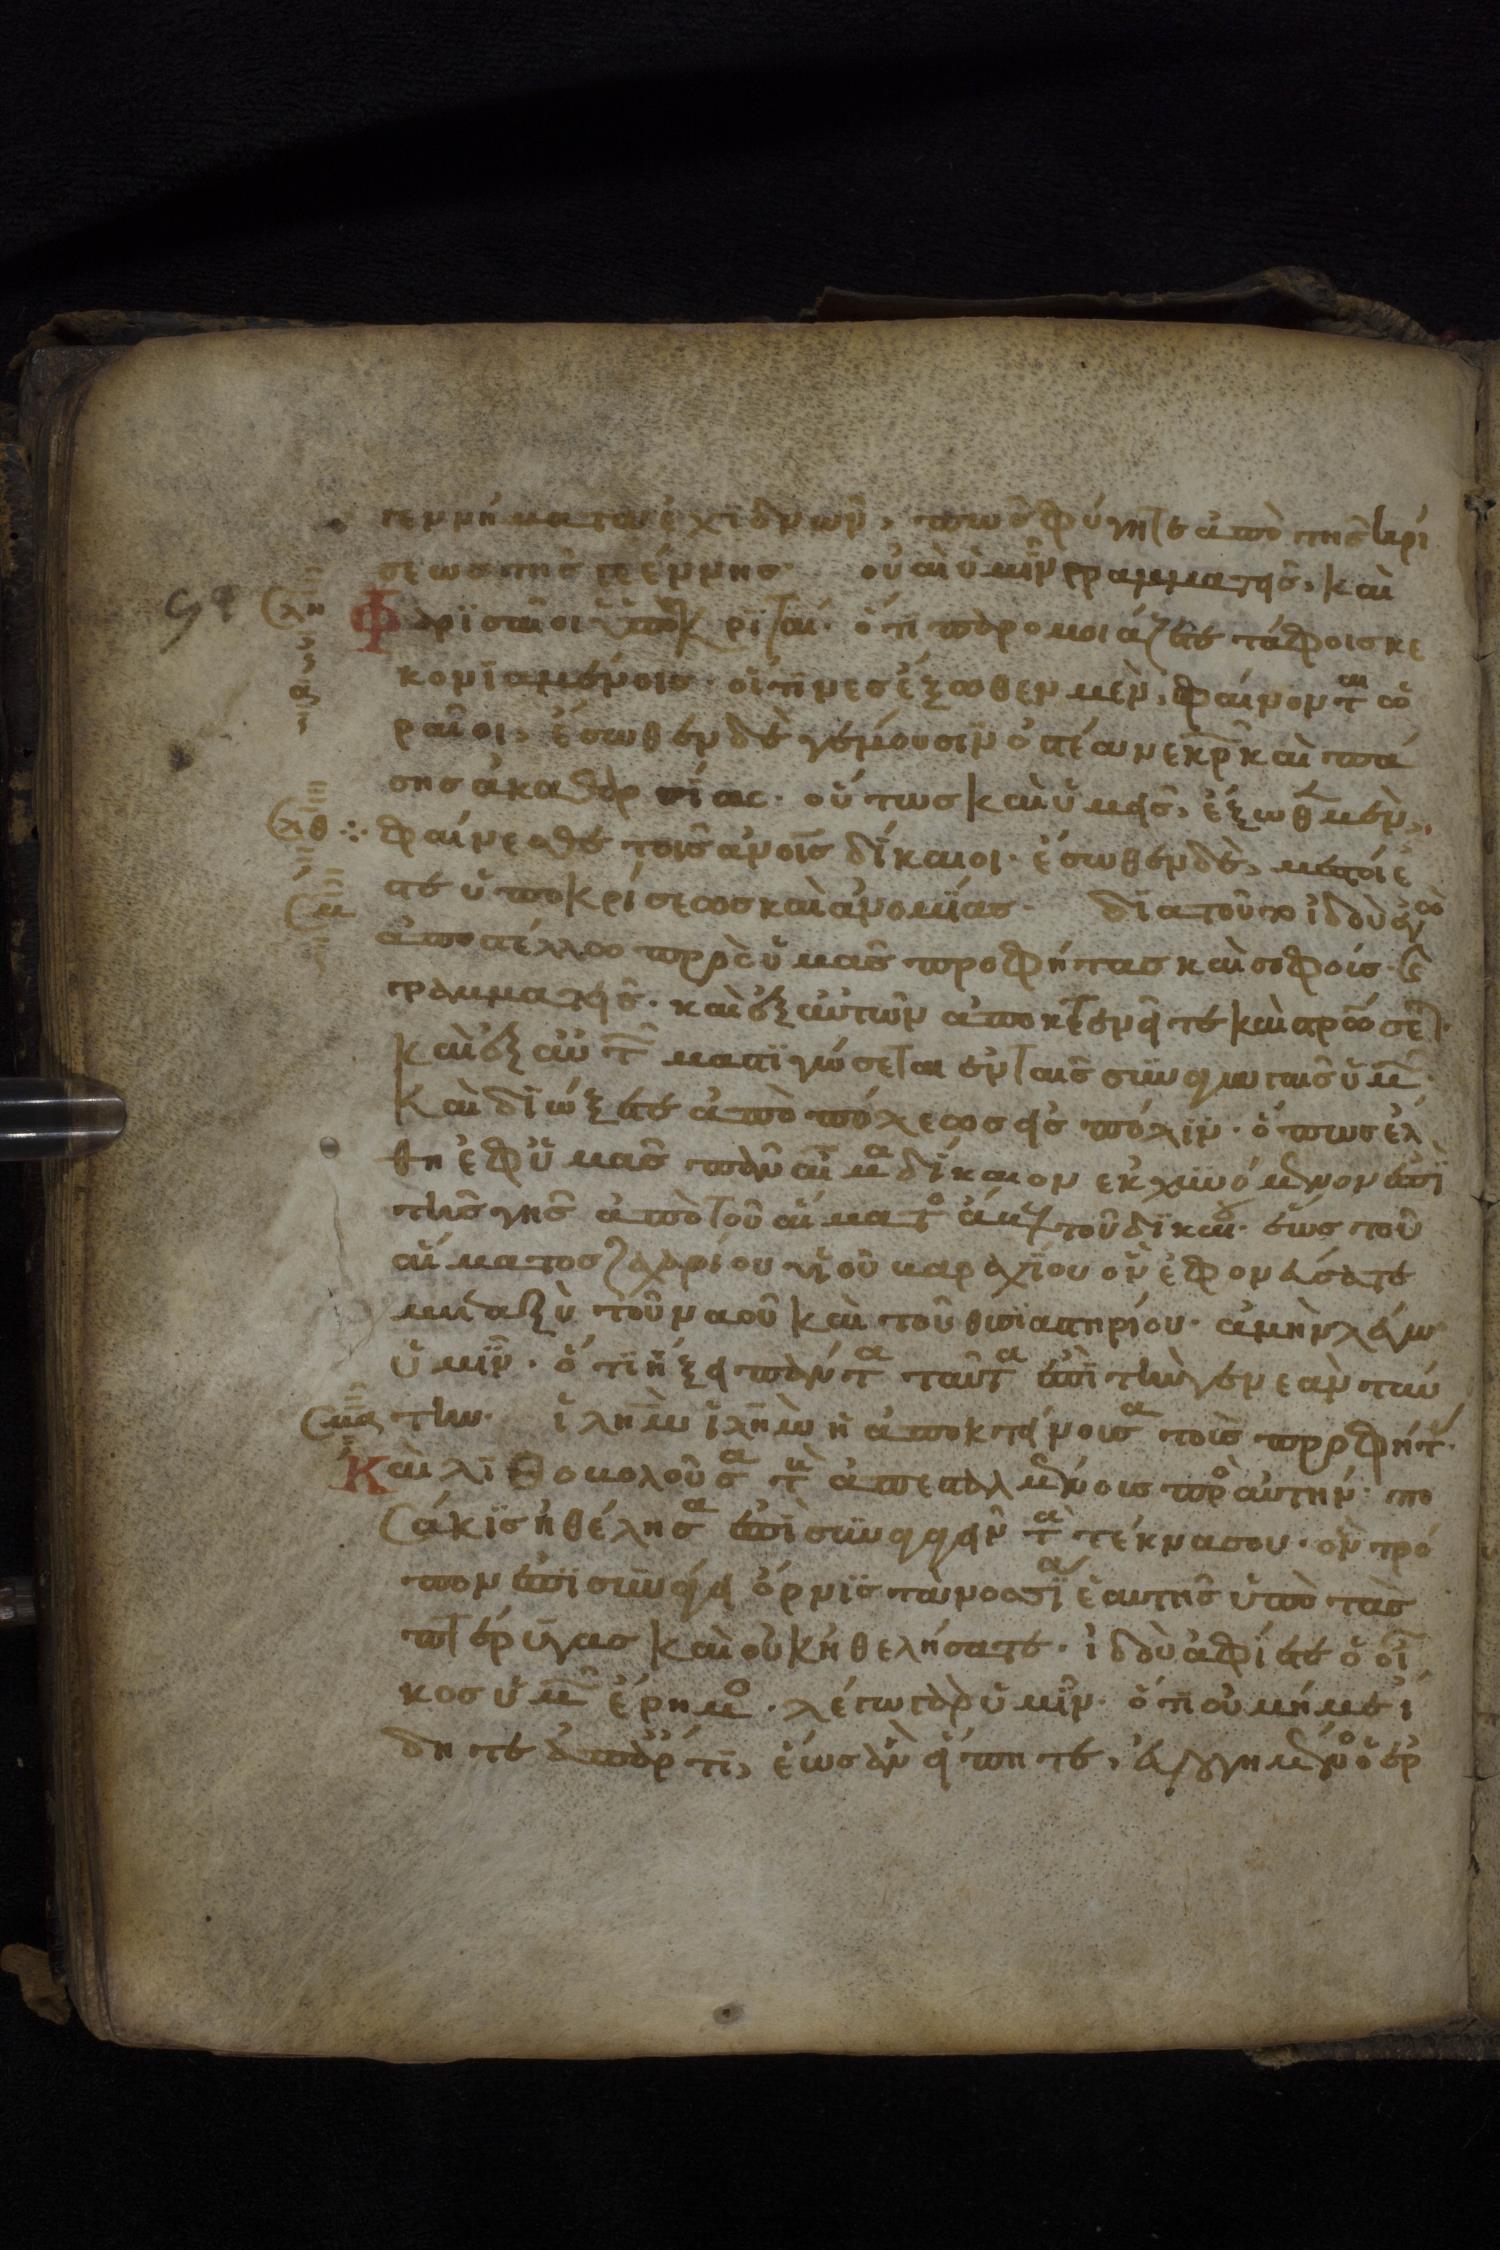 γεννήματα ἐχιδνῶν, πῶς φύγητε ἀπὸ τῆς κρί
σεως τῆς γεέννης· οὐαὶ ὑμῖν γραμματεῖς, καὶ
Φαρισαῖοι ὑποκριταί· ὅτι παρομοιάζετε τάφοις κε
κονιαμένοις· οἵτινες ἔξωθεν μὲν, φαίνονται ὡ
ραῖοι, ἔσωθεν δὲ γέμουσιν ὀστέων νεκρῶν καὶ πά
σης ἀκαθαρσίας· οὕτως καὶ ὑμεῖς, ἔξωθεν μὲν,
φαίνεσθε τοῖς ἀνοῖς δίκαιοι· ἔσωθεν δὲ, μεστοί ἐ
στε ὑποκρίσεως καὶ ἀνομίας· διὰ τοῦτο ἰδοὺ ἐγὼ
ἀποστέλλω πρὸς ὑμᾶς προφήτας καὶ σοφοὺς· καὶ
γραμματεῖς· καὶ ἐξ αὐτῶν ἀποκτενεῖτε καὶ σταυρώσετε·
καὶ ἐξ αὐτῶν μαστιγώσεται ἐν ταῖς συναγωγαῖς ὑμῶν·
καὶ διώξετε ἀπὸ πόλεως εἰς πόλιν· ὅπως ἔλ
θη ἐφ' ὑμᾶς πᾶν αἷμα δίκαιον ἐκχυνόμενον ἐπὶ
τῆς γῆς ἀπὸ τοῦ αἵματος ἄβελ τοῦ δικαίου· ἕως τοῦ
αἵματος ζαχαρίου υἱοῦ βαραχίου ὃν ἐφονεύσατε
μεταξὺ τοῦ ναοῦ καὶ τοῦ θυσιαστηρίου· ἀμὴν λέγω
ὑμῖν· ὅτι ἥξει πάντα ταῦτα ἐπὶ τὴν γενεὰν ταύ
την· ἰλημ ἰλημ ἡ ἀποκτείνουσα τοὺς προφήτας·
Καὶ λιθοβολοῦσα τοὺς ἀπεσταλμένους πρὸς αὐτήν· πο
σάκις ἠθέλησα ἐπισυναγαγεῖν τὰ τέκνα σου· ὃν τρό
πον ἐπισυνάγει ὄρνις τὰ νοσσία ἑαυτῆς ὑπὸ τὰς
πτέρυγας καὶ οὐκ ἠθελήσατε· ἰδοὺ ἀφίετε ὁ οἶ
κος ὑμῶν ἔρημος· λέγω γὰρ ὑμῖν· ὅτι οὐ μή με ἴ
δητε ἀπάρτι, ἕως ἂν εἴπητε, εὐλογημένος ὁ ἐρ
(λη
(λθ
(μ
(μα